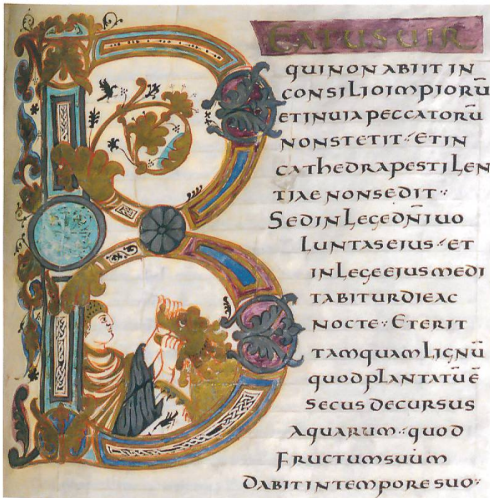 BEATUS UIR
QUI NON ABIIT IN
CONSILIO IMPIORŪ
ET IN UIA PECCATORŪ
NON STETIT · ET IN
CATHEDRA PESTILEN
TIAE NON SEDIT ·
SED IN LEGE DN̄I UO
LUNTAS EIUS · ET
IN LEGE EIUS MEDI
TABITUR DIE AC
NOCTE · ET ERIT
TAMQUAM LIGNŪ
QUOD PLANTATŪ Ē
SECUS DECURSUS
AQUARUM · QUOD
FRUCTUM SUUM
DABIT IN TEMPORE SUO ·